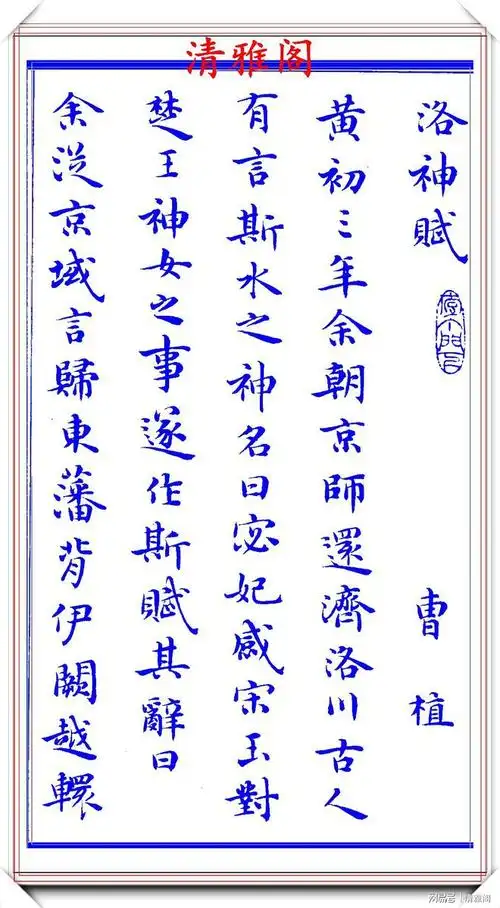 清雅阁
洛神賦 曹植
黃初三年余朝京師還濟洛川古人
有言斯水之神名曰宓妃感宋玉對
楚王神女之事遂作斯賦其辭曰
余從京域言歸東藩背伊闕越轘
网易号|清雅阁